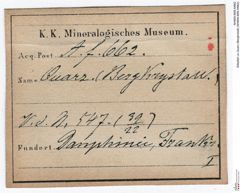 K. K. Mineralogisches Museum.
Acq.-Post A. f. 662.
Name Quarz. (Bergkrystall.)
V. d. A, 547. (30/22)
Fundort Dauphinée, Frankr.
I